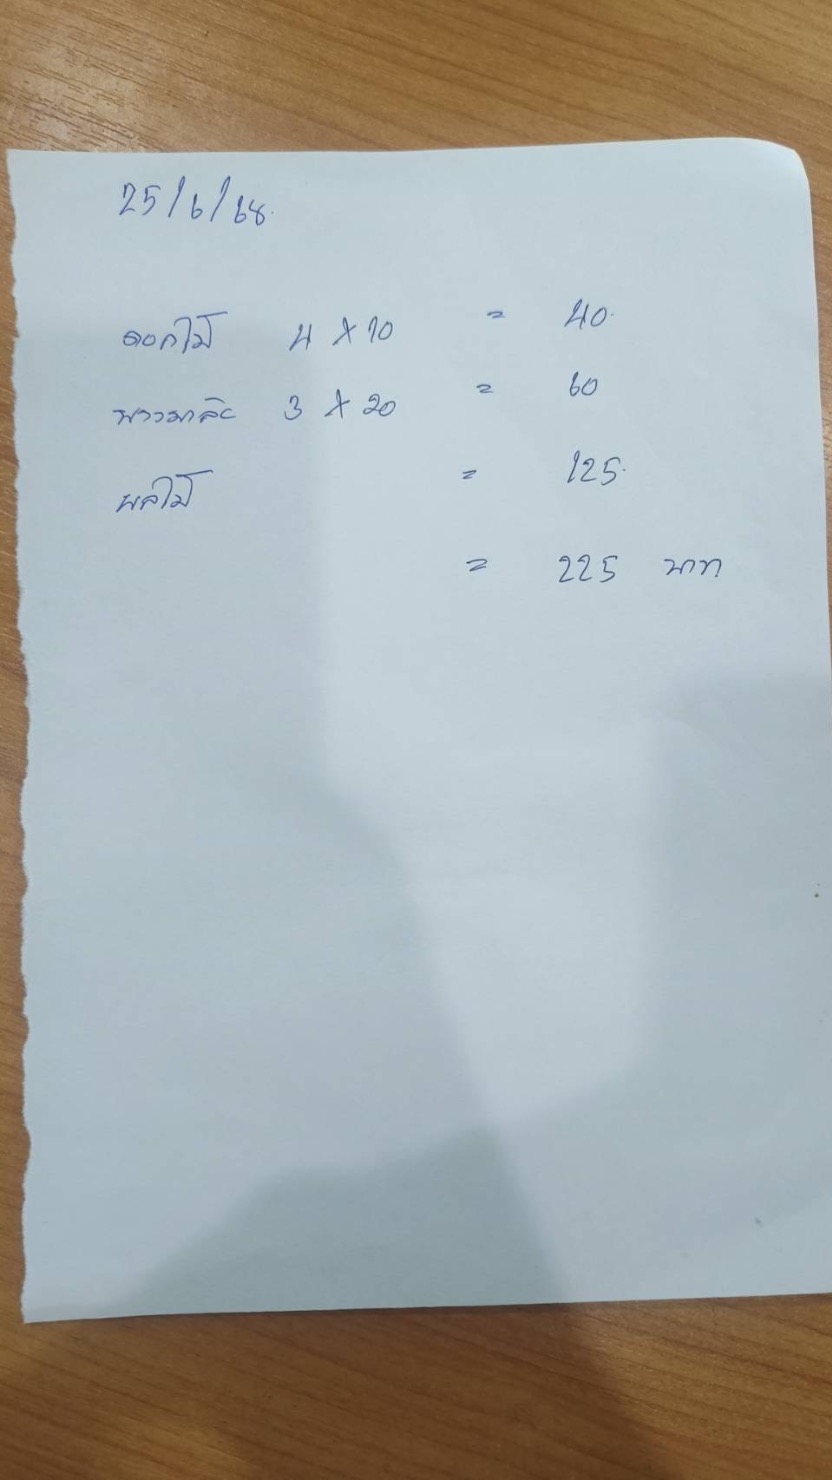 25/6/68.
ดอกไม้ 4 X 10 = 40.
พวงมาลัย 3 X 20 = 60
ผลไม้ = 125.
= 225 บาท